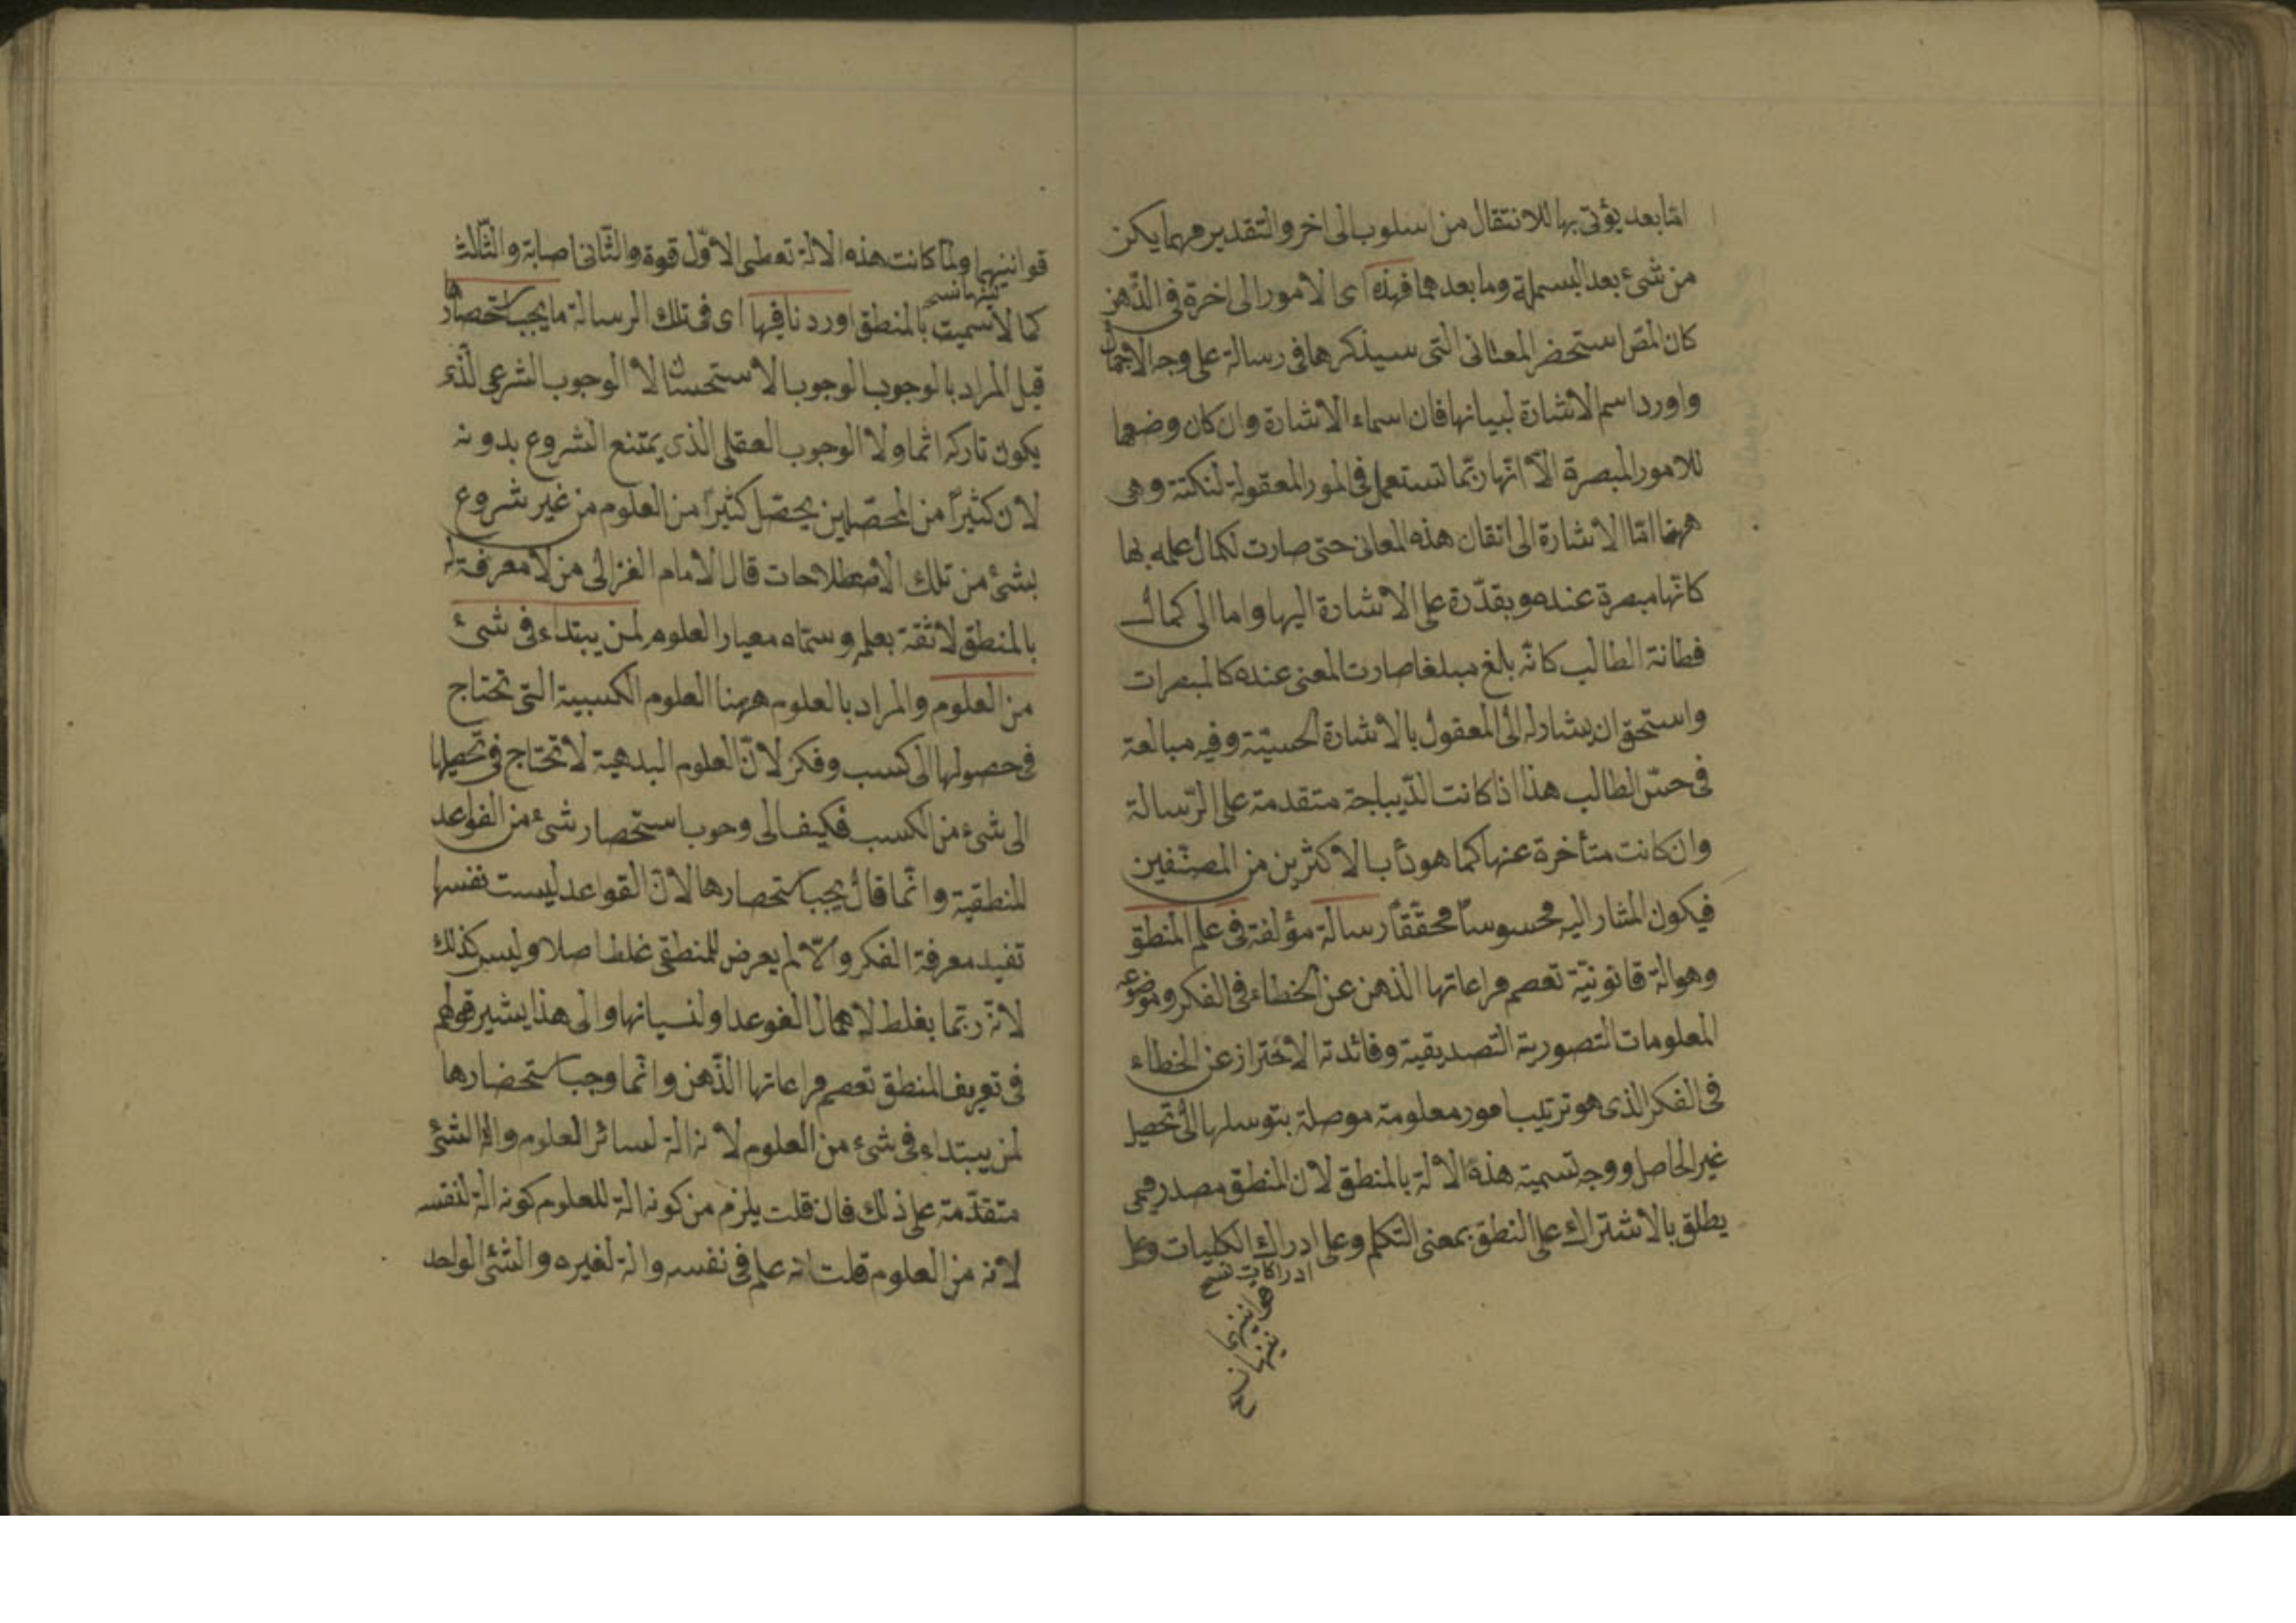 امّا بعد يؤتى بها للانتقال من اسلوب الى اخر والتقدير مهما يكن
من شئ بعد البسملة وما بعدهما فهذه اى الامور الى اخرة فى الذّهن
كان المص استحضر المعانى التى سيذكرها فى رسالة على وجه الاجمال
واورد اسم الاشارة لبيانها فان اسماء الاشارة وان كان وضعها
للامور المبصرة الّا انّها ربّما تستعمل فى لمور المعقولة لنكتة وهى
ههنا امّا الاشارة الى اتقان هذه المعانى حتى صارت لكمال علمه بها
كانّها مبصرة عنده ويقدّرة على الاشارة اليها واما الى كمال
فطانة الطالب كانّه بلغ مبلغا صارت المعنى عنده كالمبصرات
واستحق ان يشار له الى المعقول بالاشارة الحسيّة وفيه مبالغة
فى حسّ الطالب هذا اذا كانت الدّيباجة متقدمة على الرّسالة
وان كانت متأخرة عنها كما هو دأب الاكثرين من المصنّفين
فيكون المشار اليه محسوسا محقّقاً رسالة مؤلفة فى علم المنطق
وهو الة قانونيّة تعصم مراعاتها الذهن عن الخطاء فى الفكر وموضوعه
المعلومات التصورية التصديقية وفائدته الاحتراز عن الخطاء
فى الفكر الذى هو ترتيب امور معلومة موصلة بتوسلها الى تحصيل
غير الحاصل ووجه تسمية هذه الالة بالمنطق لان المنطق مصدر ميمى
يطلق بالاشتراك على النطق بمعنى التكلم وعلى ادراك الكليات وعلى
ادراكات نسخ
قوانينها
نسخ
قوانينهما ولمّا كانت هذه الالة تعطى الاوّل قوة والثّانى اصابة والثّالث
نسخ
كمالا سميت بالمنطق اوردنا فيها اى فى تلك الرسالة ما يجب استحصارها
قيل المراد بالوجوب الوجوب الاستحسانى لا الوجوب الشرعى الّذى
يكون تاركه اثما ولا الوجوب العقلى الذى يمتنع الشروع بدونه
لان كثيراً من المحصّلين يحصّل كثيراً من العلوم من غير شروع
بشئ من تلك الاصطلاحات قال الامام الغزالى من لا معرفة له
بالمنطق لا ثقة بعلمه وسمّاه معيار العلوم لمن يبتداء فى شئ
من العلوم والمراد بالعلوم ههنا العلوم الكسبية التى تحتاج
فى حصولها الى كسب وفكر لانّ العلوم البدهية لا تحتاج فى تحصيلها
الى شئ من الكسب فكيف الى وجوب استحصار شئ من القواعد
المنطقية وانّما قال يجب استحصارها لانّ القواعد ليست نفسها
تفيد معرفة الفكر والّا لم يعرض للمنطقى غلط اصلا وليس كذلك
لانّه ربّما يغلط لاهمال الغوعد او لنسيانها والى هذا يشير قولهم
فى تعريف المنطق تعصم مراعاتها الذّهن وانّما وجب استحضارها
لمن يبتداء فى شئ من العلوم لانه الة لسائر العلوم والة الشئ
متقدّمة على ذلك فان قلت يلزم من كونه الة للعلوم كونه الة لنفسه
لانه من العلوم قلت انه علم فى نفسه والة لغيره والشئ الواحد